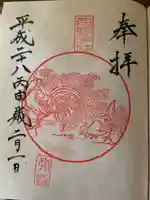 奉拝
平成二十八丙申歳二月一日